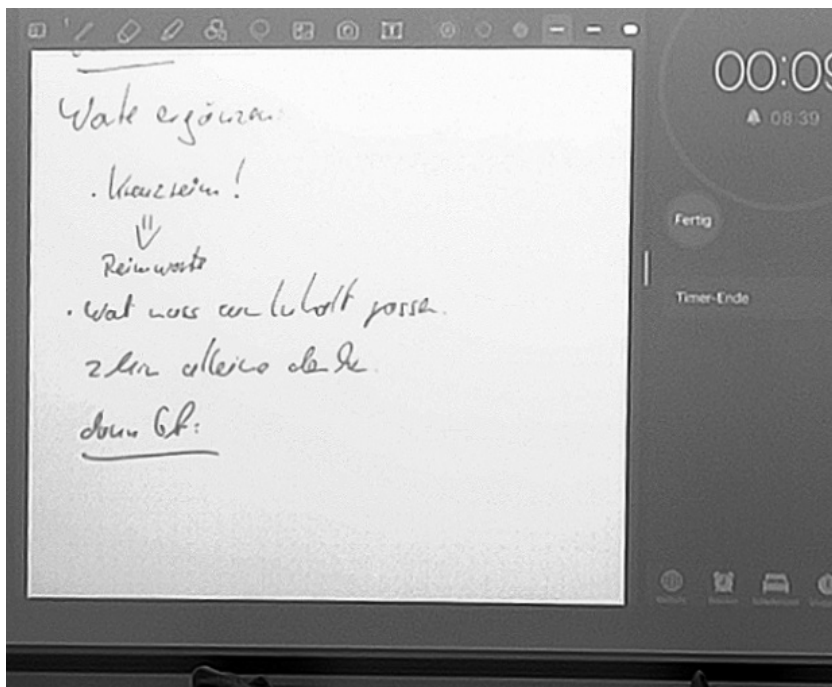 Worte ergänzen:
. Kreuzreim!
Reimworte
. Wort muss zum Inhalt passen.
2 Min alleine denken.
dann GA:
00:09
08:39
Fertig
Timer-Ende